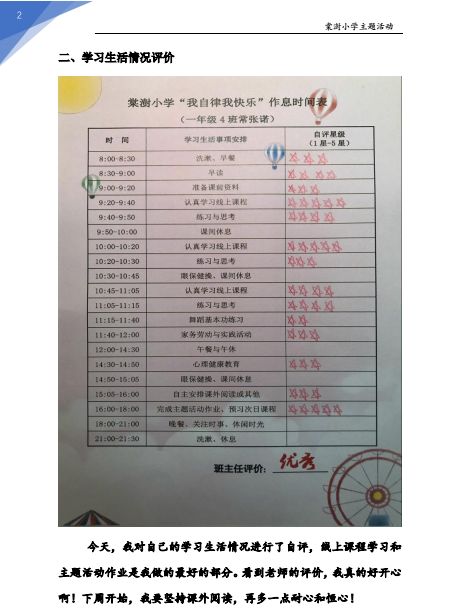 2
棠澍小学主题活动
二、学习生活情况评价
棠澍小学“我自律我快乐”作息时间表
（一年级 4 班常张诺）
时 间 学习生活事项安排 自评星级
（1星-5星）
8:00-8:30 洗漱、早餐
8:30-9:00 早读
9:00-9:20 准备课前资料
9:20-9:40 认真学习线上课程
9:40-9:50 练习与思考
9:50-10:00 课间休息
10:00-10:20 认真学习线上课程
10:20-10:30 练习与思考
10:30-10:45 眼保健操、课间休息
10:45-11:05 认真学习线上课程
11:05-11:15 练习与思考
11:15-11:40 舞蹈基本功练习
11:40-12:00 家务劳动与实践活动
12:00-14:30 午餐与午休
14:30-14:50 心理健康教育
14:50-15:05 眼保健操、课间休息
15:05-16:00 自主安排课外阅读或其他
16:00-18:00 完成主题活动作业、预习次日课程
18:00-21:00 晚餐、关注时事、休闲时光
21:00-21:30 洗漱、休息
班主任评价：优秀
今天，我对自己的学习生活情况进行了自评，线上课程学习和
主题活动作业是我做的最好的部分。看到老师的评价，我真的好开心
啊！下周开始，我要坚持课外阅读，再多一点耐心和恒心！